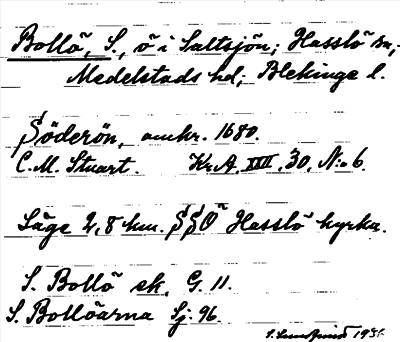 Bollö, S., ö i Saltsjön; Hasslö sn,
Medelstads hd; Blekinge l.
Söderön, omkr. 1680.
C.M. Stuart. Kr.A. XXIII, 30, N:o 6.
Läge 2,8 km. SSO Hasslö kyrka.
S. Bollö ek. G. 11.
S. Bollöarna Sj. 96.